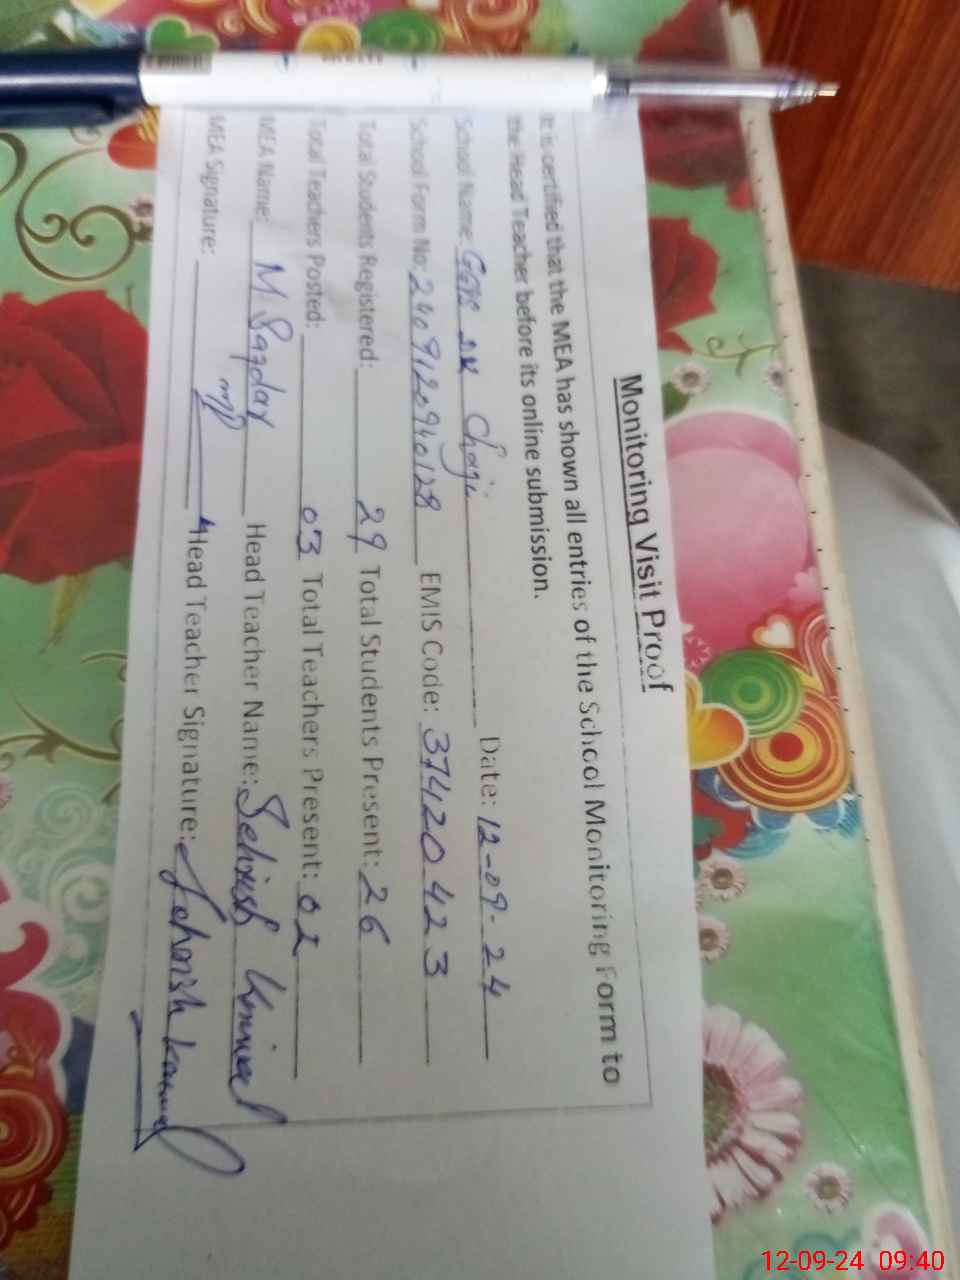 Monitoring Visit Proof
It is certified that the MEA has shown all entries of the School Monitoring Form to
the Head Teacher before its online submission.
School Name: Date: 12-09-24
School Form No: 2409120940128 EMIS Code: 37420423
Total Students Registered: 29 Total Students Present: 26
Total Teachers Posted: 03 Total Teachers Present: 02
MEA Name: M Head Teacher Name: Sehrish Komal
MEA Signature: Head Teacher Signature: Sehrish Komal
12-09-24 09:40